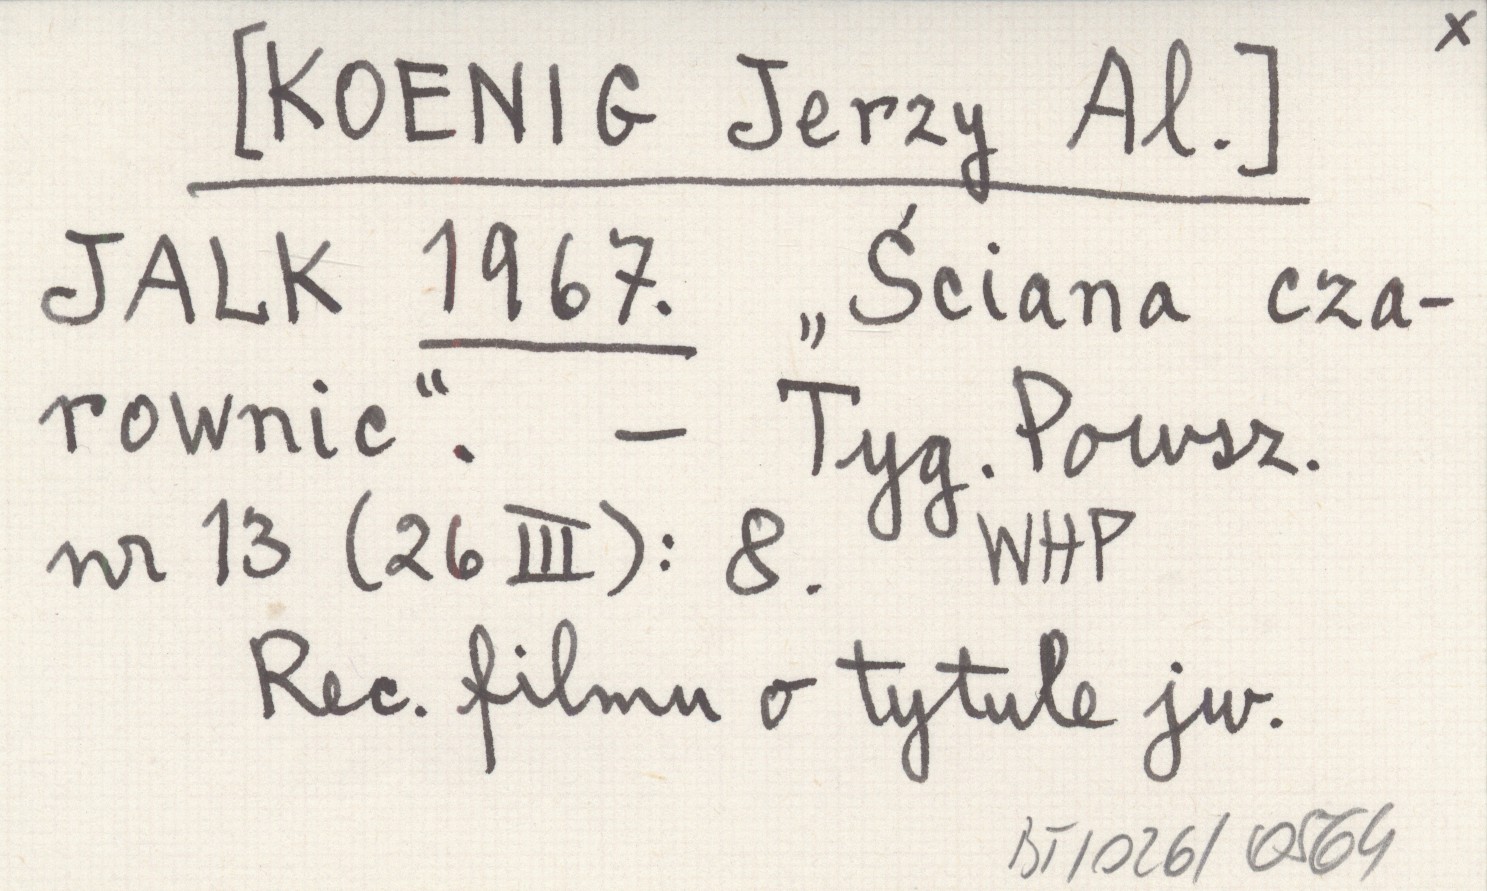 x
[KOENIG Jerzy Al.]
JALK 1967. „Ściana cza-
rownic“. – Tyg. Powsz.
nr 13 (26 III): 8. WHP
Rec. filmu o tytule jw.
BT/026/0564